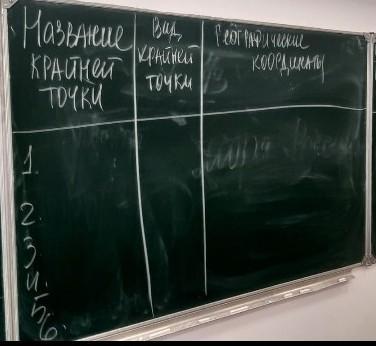 Название
крайней
точки
Вид
крайней
точки
Географические
координаты
1.
2.
3.
4.
5.
6.